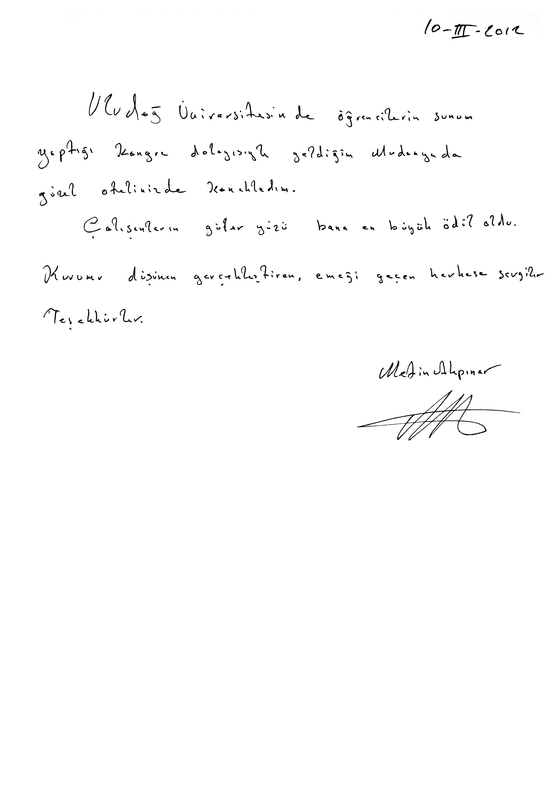 10-III-2012
Uludağ Üniversitesinde öğrencilerin sunum
yaptığı kongre dolayısıyla geldiğim Mudanyada
güzel otelinizde konakladım.
Çalışanların güler yüzü bana en büyük ödül oldu.
Kurumu düşünen gerçekleştiren, emeği geçen herkese sevgiler
Teşekkürler.
Metin Akpınar